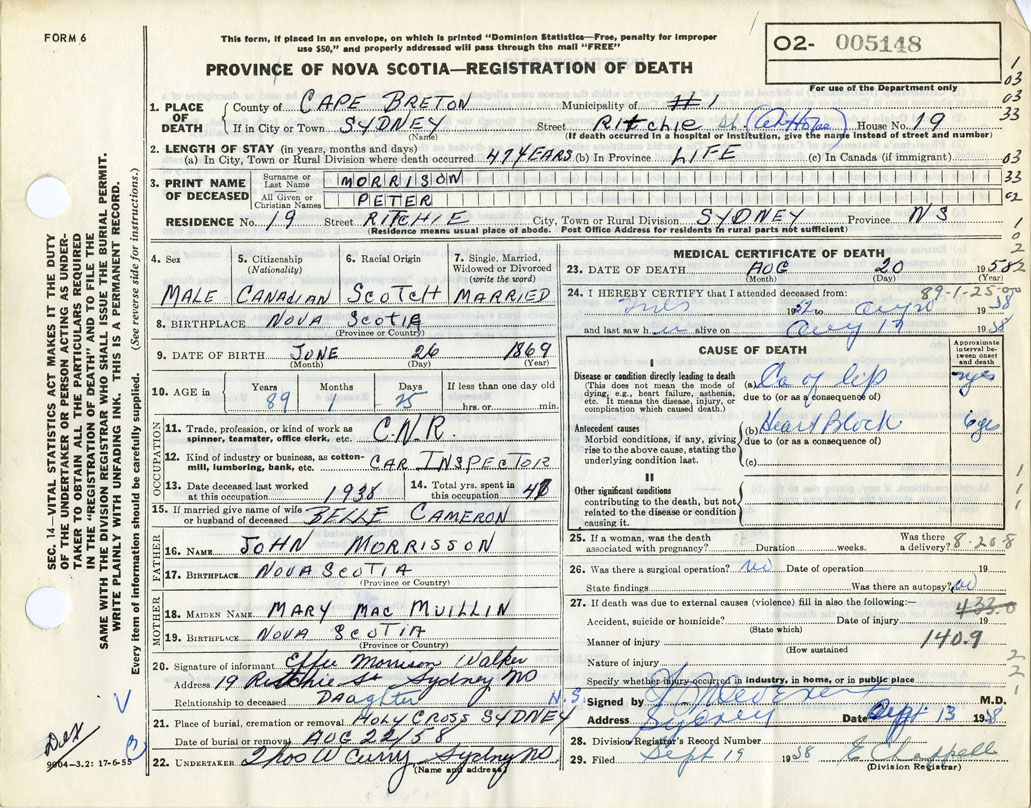 FORM 6
This form, if placed in an envelope, on which is printed "Dominion Statistics—Free, penalty for improper
use $50," and properly addressed will pass through the mail "FREE"
PROVINCE OF NOVA SCOTIA—REGISTRATION OF DEATH
O2- 005148
For use of the Department only
1. PLACE OF DEATH
County of CAPE BRETON Municipality of #1
If in City or Town SYDNEY Street Ritchie St. (At Home) House No. 19
(Name) (If death occurred in a hospital or institution, give the name instead of street and number)
2. LENGTH OF STAY (in years, months and days)
(a) In City, Town or Rural Division where death occurred 47 YEARS (b) In Province LIFE (c) In Canada (if immigrant)
3. PRINT NAME OF DECEASED
Surname or Last Name MORRISON
All Given or Christian Names PETER
RESIDENCE No. 19 Street RITCHIE City, Town or Rural Division SYDNEY Province NS
(Residence means usual place of abode. Post Office Address for residents in rural parts not sufficient)
4. Sex 5. Citizenship (Nationality) 6. Racial Origin 7. Single, Married, Widowed or Divorced (write the word)
MALE CANADIAN SCOTCH MARRIED
8. BIRTHPLACE NOVA SCOTIA
(Province or Country)
9. DATE OF BIRTH JUNE 26 1869
(Month) (Day) (Year)
10. AGE in Years Months Days If less than one day old
89 1 25 hrs. or min.
OCCUPATION
11. Trade, profession, or kind of work as
spinner, teamster, office clerk, etc. C.N.R.
12. Kind of industry or business, as cotton-
mill, lumbering, bank, etc. CAR INSPECTOR
13. Date deceased last worked
at this occupation 1938
14. Total yrs. spent in
this occupation
15. If married give name of wife
or husband of deceased BELLE CAMERON
FATHER
16. NAME JOHN MORRISSON
17. BIRTHPLACE NOVA SCOTIA
(Province or Country)
MOTHER
18. MAIDEN NAME MARY MAC MUILLIN
19. BIRTHPLACE NOVA SCOTIA
(Province or Country)
20. Signature of informant Effie Morrison Walker
Address 19 Ritchie St Sydney NS
Relationship to deceased DAughter N.S.
21. Place of burial, cremation or removal HOLY CROSS SYDNEY
Date of burial or removal AUG 22/58
22. UNDERTAKER W Curry Sydney NS.
(Name and address)
MEDICAL CERTIFICATE OF DEATH
23. DATE OF DEATH AUG 20 1958
(Month) (Day) (Year)
24. I HEREBY CERTIFY that I attended deceased from: 89-1-25-00
1952 to Aug 20 1958
and last saw h im alive on Aug 13 1958
CAUSE OF DEATH
Approximate interval between onset and death
I
Disease or condition directly leading to death
(This does not mean the mode of
dying, e.g., heart failure, asthenia,
etc. It means the disease, injury, or
complication which caused death.)
(a) Ca of lip
due to (or as a consequence of)
Antecedent causes
Morbid conditions, if any, giving
rise to the above cause, stating the
underlying condition last.
(b) Heart Block 6 yrs
due to (or as a consequence of)
(c)
II
Other significant conditions
contributing to the death, but not
related to the disease or condition
causing it.
25. If a woman, was the death
associated with pregnancy? Duration weeks. Was there
a delivery? 8-20-8
26. Was there a surgical operation? no Date of operation 19
State findings Was there an autopsy? no
27. If death was due to external causes (violence) fill in also the following:— 433.0
Accident, suicide or homicide? Date of injury 19
(State which)
Manner of injury 140.9
(How sustained
Nature of injury
Specify whether injury occurred in industry, in home, or in public place
Signed by M.D.
Address Sydney Date Sept 13 1958
28. Division Registrar's Record Number
29. Filed Sept 19 1958 E Chappell
(Division Registrar)
SEC. 14—VITAL STATISTICS ACT MAKES IT THE DUTY
OF THE UNDERTAKER OR PERSON ACTING AS UNDER-
TAKER TO OBTAIN ALL THE PARTICULARS REQUIRED
IN THE "REGISTRATION OF DEATH" AND TO FILE THE
SAME WITH THE DIVISION REGISTRAR WHO SHALL ISSUE THE BURIAL PERMIT.
WRITE PLAINLY WITH UNFADING INK. THIS IS A PERMANENT RECORD.
Every item of information should be carefully supplied. (See reverse side for instructions.)
9004-3.2: 17-6-55
1
03
03
33
03
33
02
1
0
2
2
1
1
1
2
2
1